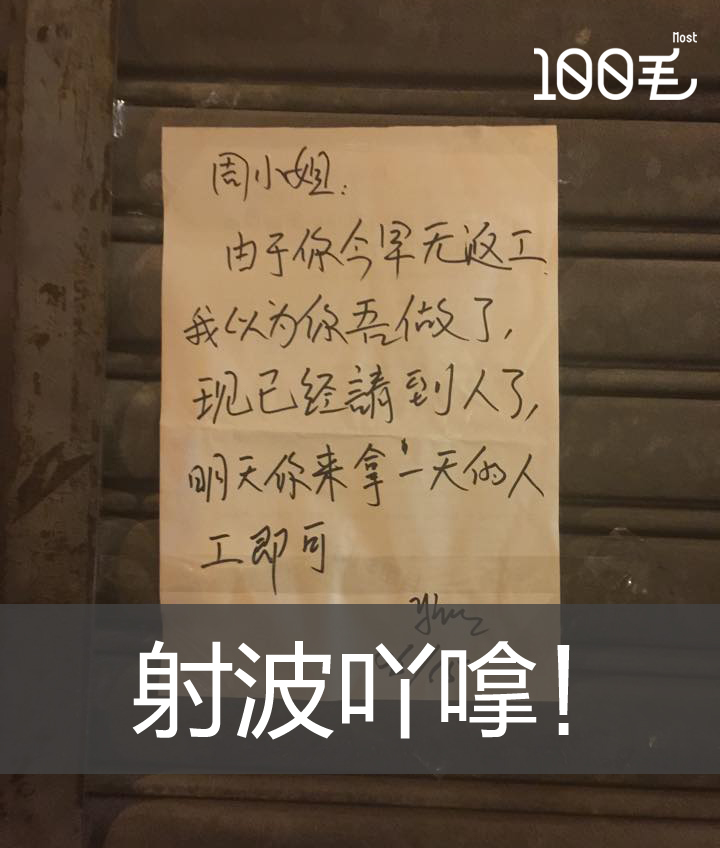 Most
100毛
周小姐:
由于你今早无返工
我以为你吾做了,
现已经請到人了,
明天你来拿一天的人
工即可
射波吖嗱!